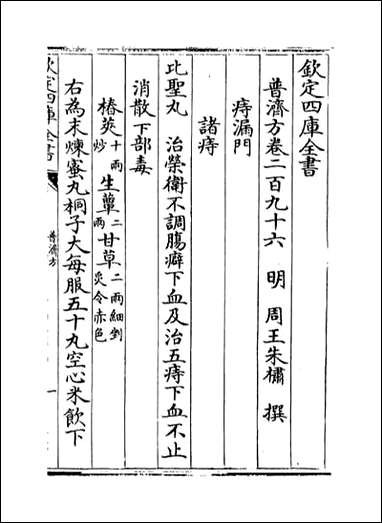 欽定四庫全書
普濟方卷二百九十六 明 周王朱橚 撰
痔漏門
諸痔
比聖丸 治榮衛不調腸癖下血及治五痔下血不止
消散下部毒
椿莢十兩炒 生薑二兩 甘草二兩細剉炙令赤色
右為末煉蜜丸桐子大每服五十丸空心米飲下
欽定四庫全書
普濟方
一